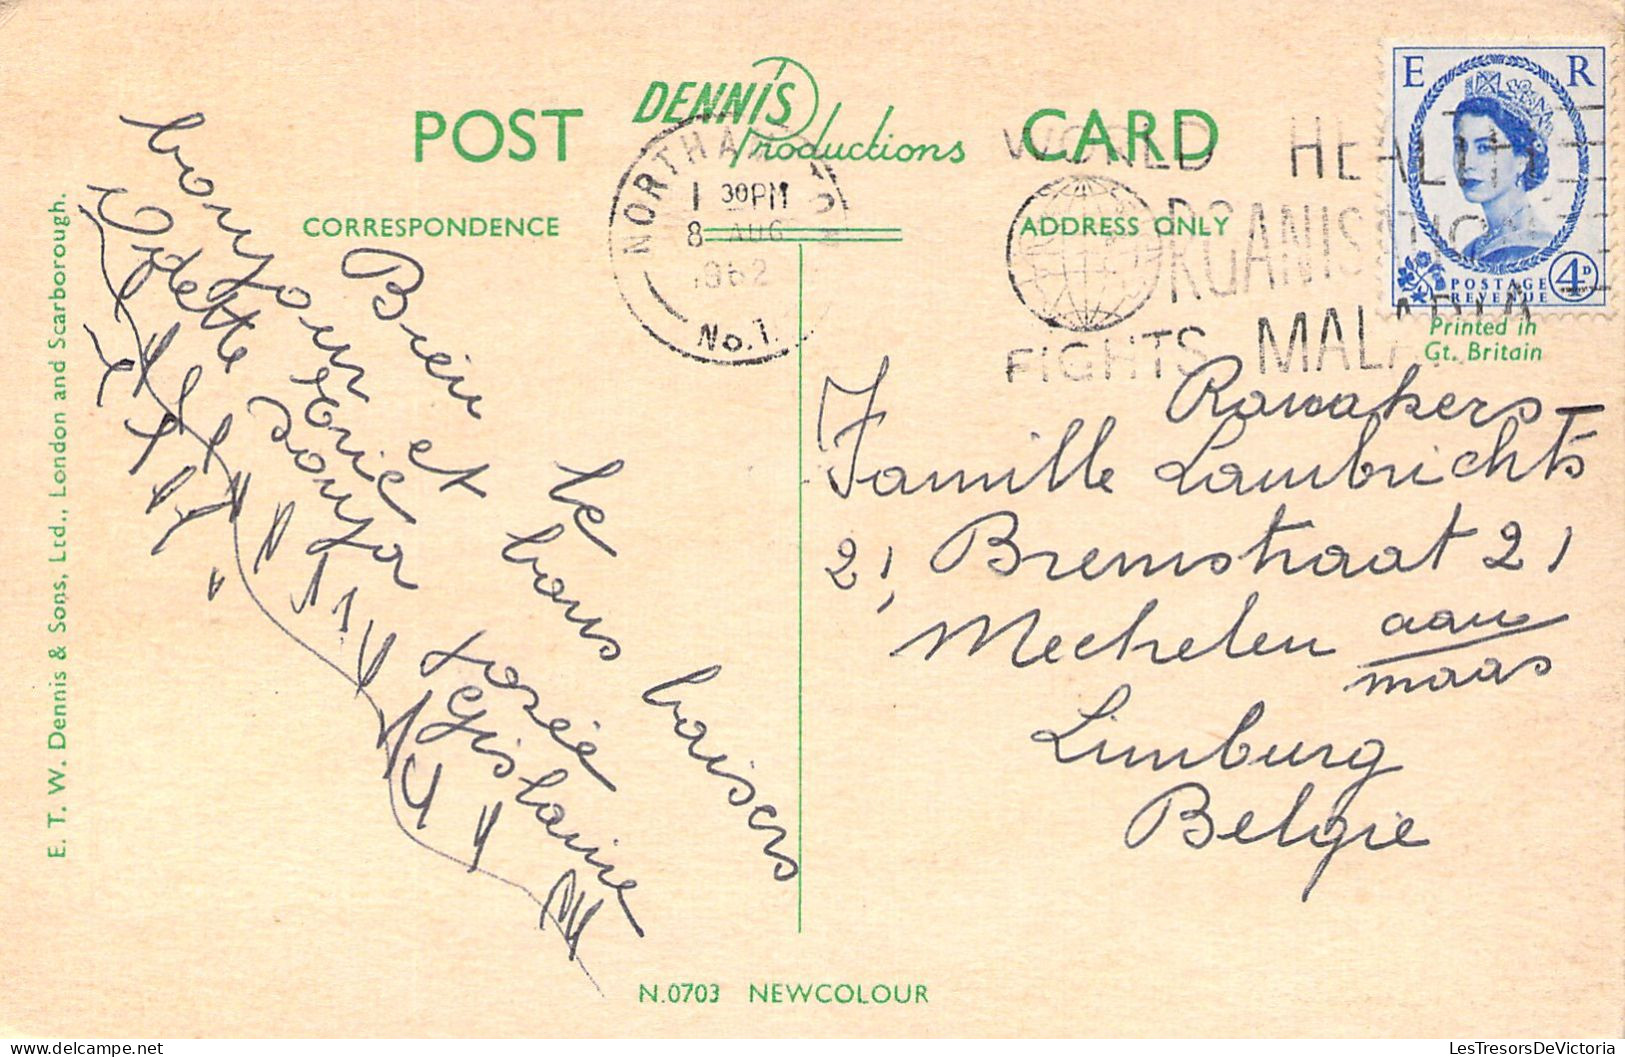 POST
DENNIS
Productions
CARD
CORRESPONDENCE
ADDRESS ONLY
NORTHAMPTON
1 30PM
8 AUG
1962
No.1.
WORLD HEALTH
ORGANISATION
FIGHTS MALARIA
E R
POSTAGE
REVENUE
4D
Printed in
Gt. Britain
Bien le
bonjour et bons baisers
Odette Josée
Sonja Ghislaine
Famille Lambrichts
21, Bremstraat 21
Mechelen aan
maas
Limburg
Belgie
E. T. W. Dennis & Sons, Ltd., London and Scarborough.
N.0703 NEWCOLOUR
LesTresorsDeVictoria